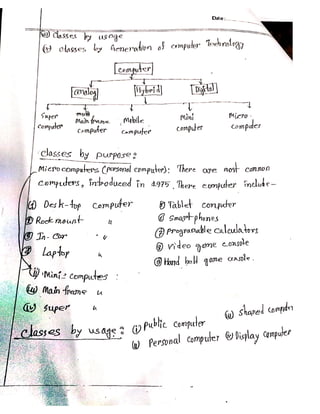 Date:
classes by usage
(v) classes by Generation of computer Technology
computer
Analog Hybrid Digital
Super computer Main frame computer Mobile computer Mini computer Micro computer
classes by purpose:
Micro computers (personal computer): There are most common
computers, introduced in 1975. There computer include-
Desk-top computer
Rack mount "
In-car "
Laptop "
Tablet computer
Smart phones
Programable calculators
Video game console
Hand held game console.
Mini computes :
Main frame "
(iv) Super "
classes by usage: (i) Public computer
(ii) Personal computer
(iii) shared computer
Display computer